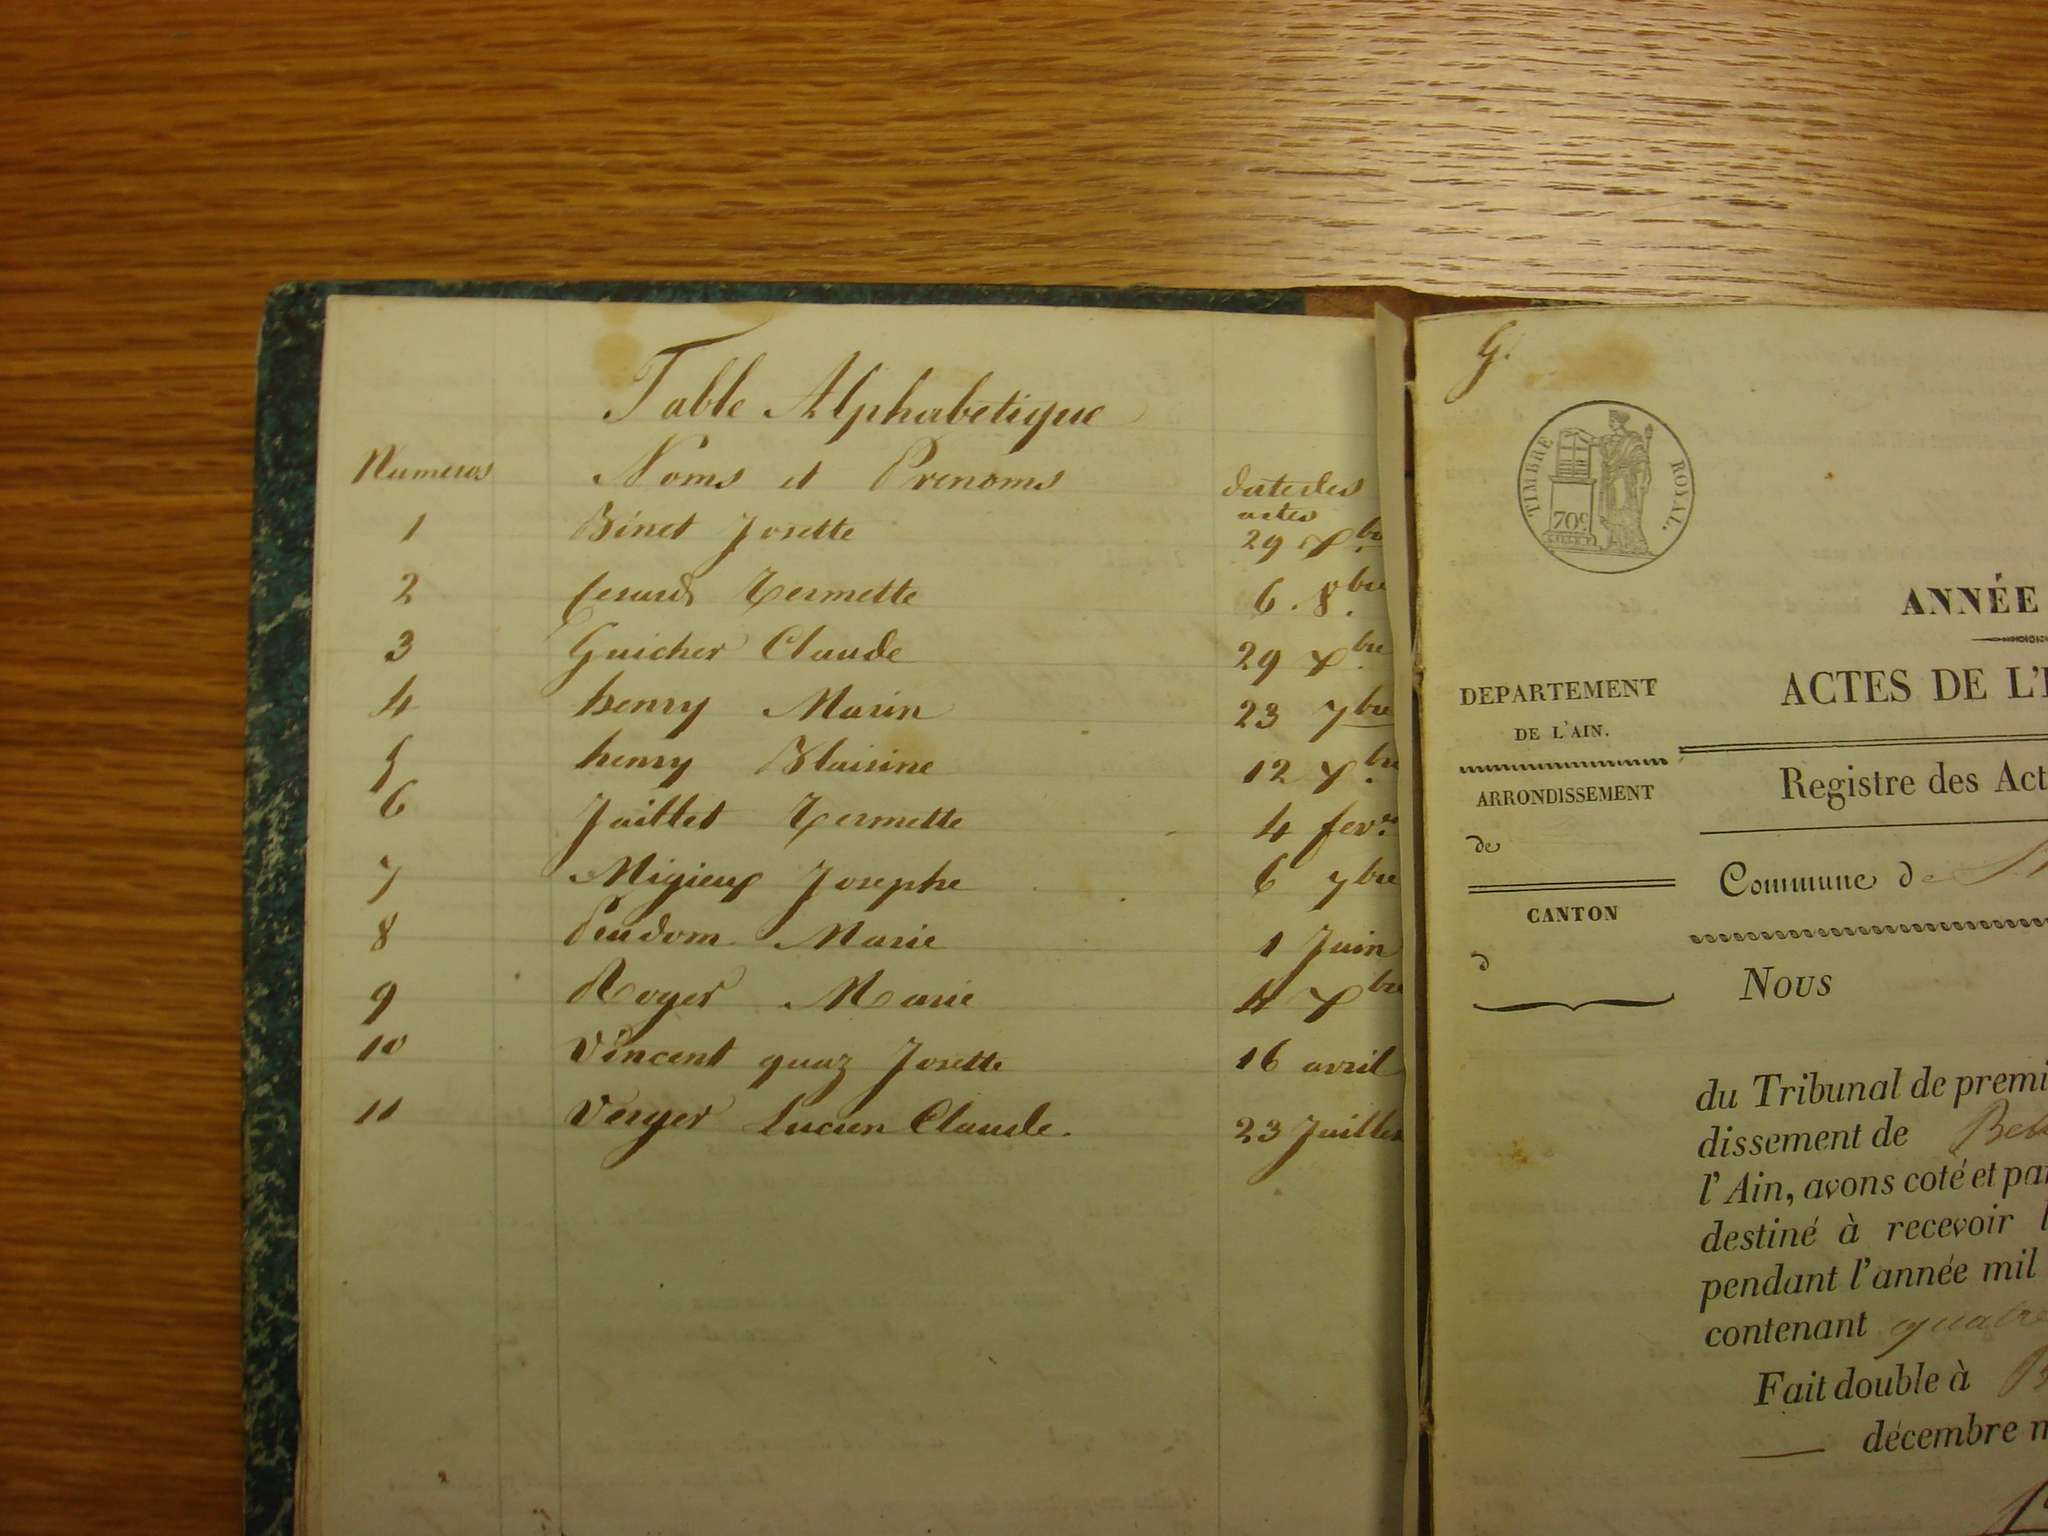 Table Alphabetique
Numeros Noms et Prenoms date des
actes
1 Binet Josette 29 Xbre
2 Cesard Permette 6. 8.bre
3 Guicher Claude 29 Xbre
4 henry Marin 23 7bre
5 henry Blaisine 12 Xbre
6 Jaillet Permette 4 fevr.
7 Migieux Josephe 6 7bre
8 Peudom Marie 1 Juin
9 Royer Marie 4 Xbre
10 Vincent quaz Josette 16 avril
11 Verger Lucien Claude. 23 Juillet
G.
TIMBRE ROYAL.
70c
ANNÉE
DEPARTEMENT
DE L'AIN.
ACTES DE L'
ARRONDISSEMENT
de
Registre des Act
CANTON
d
Commune de
Nous
du Tribunal de premi
dissement de Bel
l'Ain, avons coté et par
destiné à recevoir l
pendant l'année mil
contenant quatre
Fait double à B
décembre m